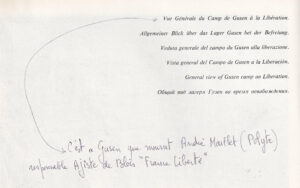 Vue Générale du Camp de Gusen à la Libération.
Allgemeiner Blick über das Lager Gusen bei der Befreiung.
Veduta generale del campo du Gusen alla liberazione.
Vista general del Campo de Gusen à la Liberación.
General view of Gusen camp on Liberation.
Общий вид лагеря Гузен во время освобождения.
C'est à Gusen que mourut André Maillet (Polyte)
responsable Ajiste de Blois "France Liberté"